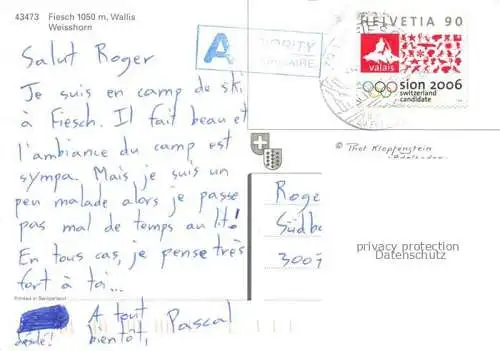 43473 Fiesch 1050 m, Wallis
Weisshorn
Salut Roger
Je suis en camp de ski
à Fiesch. Il fait beau et
l'ambiance du camp est
sympa. Mais je suis un
peu malade alors je passe
pas mal de temps au lit!
En tous cas, je pense très
fort à toi...
Printed in Switzerland
A tout
bientôt, Pascal
désolé!
A PRIORITY
HELVETIA 90
valais
sion 2006
switzerland
candidate
© Phot. Klopfenstein
Adelboden
Roge
Südba
3007
privacy protection
Datenschutz